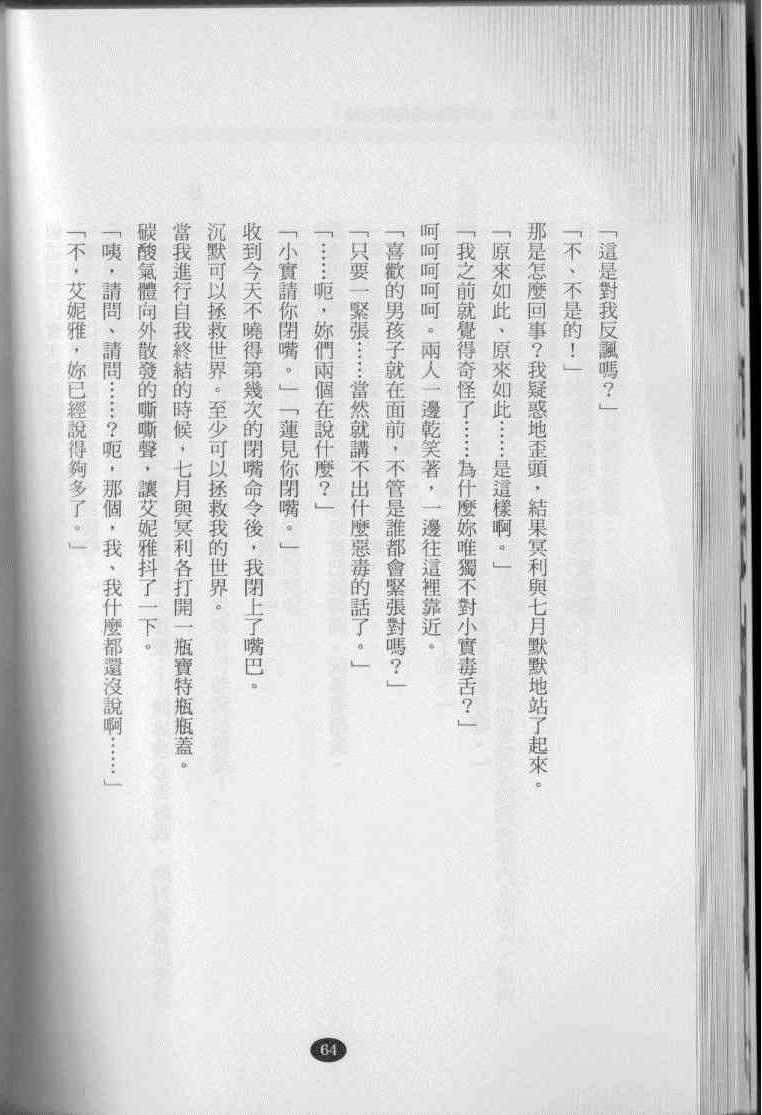 「這是對我反諷嗎？」
「不、不是的！」
那是怎麼回事？我疑惑地歪頭，結果冥利與七月默默地站了起來。
「原來如此、原來如此……是這樣啊。」
「我之前就覺得奇怪了……為什麼妳唯獨不對小實毒舌？」
呵呵呵呵呵。兩人一邊乾笑著，一邊往這裡靠近。
「喜歡的男孩子就在面前，不管是誰都會緊張對嗎？」
「只要一緊張……當然就講不出什麼惡毒的話了。」
「……呃，妳們兩個在說什麼？」
「小實請你閉嘴。」「蓮見你閉嘴。」
收到今天不曉得第幾次的閉嘴命令後，我閉上了嘴巴。
沉默可以拯救世界。至少可以拯救我的世界。
當我進行自我終結的時候，七月與冥利各打開一瓶寶特瓶瓶蓋。
碳酸氣體向外散發的嘶嘶聲，讓艾妮雅抖了一下。
「咦，請問、請問……？呃，那個，我、我什麼都還沒說啊……」
「不，艾妮雅，妳已經說得夠多了。」
64